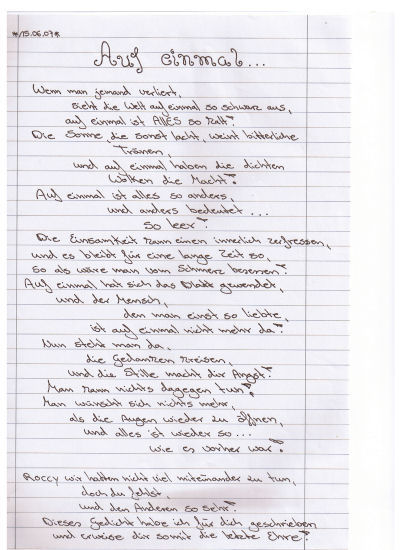 *15.06.07*
Auf einmal...
Wenn man jemand verliert,
sieht die Welt auf einmal so schwarz aus,
auf einmal ist ALLES so kalt!
Die Sonne, die sonst lacht, weint bitterliche
Tränen,
und auf einmal haben die dichten
Wolken die Macht!
Auf einmal ist alles so anders,
und anders bedeutet...
so leer!
Die Einsamkeit kann einen innerlich zerfressen,
und es bleibt für eine lange Zeit so,
so als wäre man vom Schmerz besessen!
Auf einmal hat sich das Blatt gewendet,
und der Mensch,
den man einst so liebte,
ist auf einmal nicht mehr da!
Nun steht man da,
die Gedanken kreisen,
und die Stille macht dir Angst!
Man kann nichts dagegen tun!
Man wünscht sich nichts mehr,
als die Augen wieder zu öffnen,
und alles ist wieder so...
wie es vorher war!
Roccy wir hatten nicht viel miteinander zu tun,
doch du fehlst,
und den Anderen so sehr!
Dieses Gedicht habe ich für dich geschrieben
und erweise dir somit die letzte Ehre!